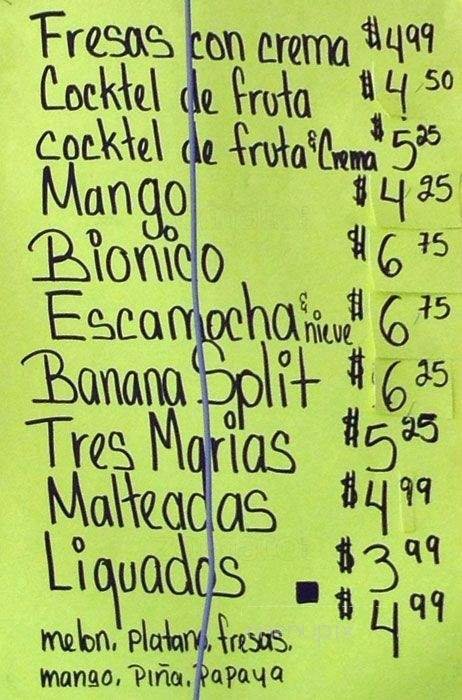 Fresas con crema $4.99
Cocktel de fruta $4.50
cocktel de fruta & Crema $5.25
Mango $4.25
Bionico $6.75
Escamocha & nieve $6.75
Banana Split $6.25
Tres Marias $5.25
Malteadas $4.99
Liquados $3.99
$4.99
melon, platano, fresas,
mango, Piña, Papaya